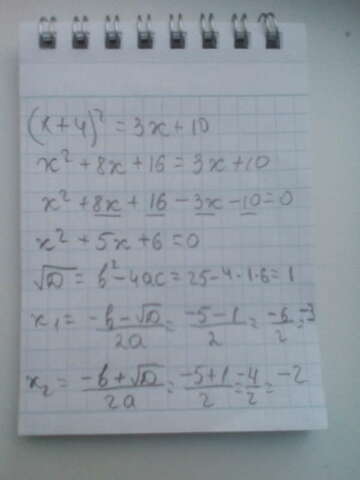 (x+4)² = 3x+10
x² + 8x + 16 = 3x + 10
x² + 8x + 16 - 3x - 10 = 0
x² + 5x + 6 = 0
√D = b² - 4ac = 25 - 4 · 1 · 6 = 1
x₁ = (-b - √D)/2a = (-5 - 1)/2 = -6/2 = -3
x₂ = (-b + √D)/2a = (-5 + 1)/2 = -4/2 = -2